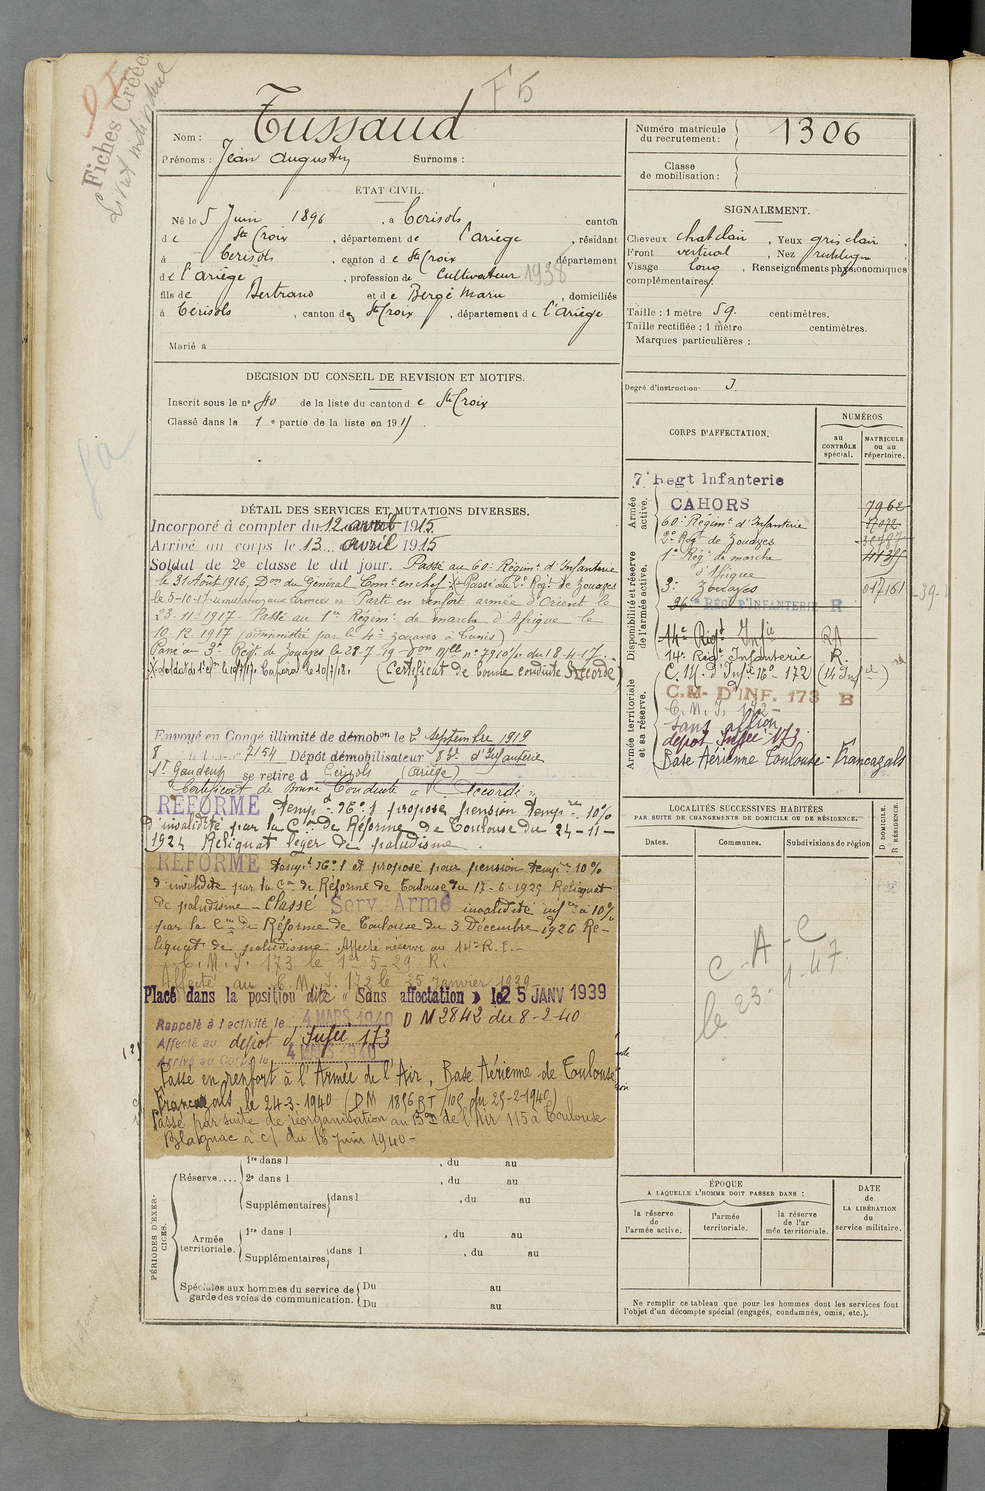 F5
Fiches Créées
Nom : Tussaud
Prénoms : Jean Augustin Surnoms :
Numéro matricule du recrutement : 1306
Classe de mobilisation :
ÉTAT CIVIL.
Né le 5 Juin 1896, à Cerisols canton
de Ste Croix, département de l'Ariège, résidant
à Cerisols, canton de Ste Croix, département
de l'Ariège, profession de Cultivateur 1938
fils de Bertrand et de Bergé Marie, domiciliés
à Cerisols, canton de Ste Croix, département de l'Ariège
Marié à
SIGNALEMENT.
Cheveux chat clair, Yeux gris clair,
Front vertical, Nez rectiligne
Visage long, Renseignements physionomiques
complémentaires:
Taille : 1 mètre 59. centimètres.
Taille rectifiée : 1 mètre centimètres.
Marques particulières :
Degré d'instruction: 3
DECISION DU CONSEIL DE REVISION ET MOTIFS.
Inscrit sous le no 40 de la liste du canton de Ste Croix
Classé dans la 1e partie de la liste en 1915
DÉTAIL DES SERVICES ET MUTATIONS DIVERSES.
Incorporé à compter du 12 avril 1915
Arrivé au corps le 13 avril 1915
Soldat de 2e classe le dit jour. Passé au 60e Régimt d'Infanterie
le 31 Août 1916, Don du Général Comt en chef. Passé au 2e Régt de Zouaves
le 5-10-17 Parti en renfort armée d'Orient le
23-11-1917 Passé au 1er Régim. de marche d'Afrique le
10-12-1917 (administré par le 4e zouaves à Tunis)
Passé au 3e Régt de Zouaves le 28-7-19 don Mlle no 7910/1 du 18-4-17.
(Certificat de bonne conduite Accordé)
Envoyé en Congé illimité de démobon le 2 septembre 1919
Dépôt démobilisateur 83e d'Infanterie
St Gaudens se retire à Cerisols (Ariège)
Certificat de Bonne Conduite "Accordé"
RÉFORMÉ Tempre no 1 proposé pension Tempre 10%
d'invalidité par la Con de Réforme de Toulouse du 24-11-
1924 Reliquat léger de paludisme.
RÉFORMÉ Tempre no 1 et proposé pour pension tempre 10%
d'invalidité par la Con de Réforme de Toulouse du 17-6-1925 Reliquat
de paludisme - Classé Serv. Armé invalidité infre à 10%
par la Con de Réforme de Toulouse du 3 Décembre 1926 Re-
liquat de paludisme Affecté réserve au 14e R.I.-
C.M.I. 173 le 1er 5-29. R.
Affecté au C.M.I. 172 le 25 Janvier 1939
Placé dans la position dite « Sans affectation » le 25 JANV 1939
Rappelé à l'activité le 4 MARS 1940 DM 2842 du 8-2-40
Affecté au dépôt d'Infie 173
Arrivé au Corps le 4 MARS 1940
Passé en renfort à l'Armée de l'Air, Base Aérienne de Toulouse
Francazals le 24-3-1940
Passé par suite de réorganisation au Bon de l'Air 115 à Toulouse
Blagnac à c/ du 16 juin 1940-
CORPS D'AFFECTATION.
NUMÉROS
au CONTRÔLE spécial.
MATRICULE ou au répertoire.
Armée active.
7e Regt Infanterie
CAHORS 7962
60e Régimt d'Infanterie
2e Régt de Zouaves
1er Régt de marche
d'Afrique
Disponibilité et réserve de l'armée active.
3e Zouaves
RÉG D'INFANTERIE R
14e Regt Infie
14e Régt Infanterie R.
C.M. d'Infie no 172 (14 Infie)
Armée territoriale et sa réserve.
C.M. D'INF. 173 B
C.M.I. 172-
Sans affon
dépôt Infie 173
Base Aérienne Toulouse-Francazals
LOCALITÉS SUCCESSIVES HABITÉES
PAR SUITE DE CHANGEMENTS DE DOMICILE OU DE RÉSIDENCE.
D DOMICILE.
R RÉSIDENCE.
Dates. Communes. Subdivisions de région
C-A-C
le 23-4-47
PÉRIODES D'EXERCICES.
Réserve....
1re dans l , du au
2e dans l , du au
Supplémentaires dans l , du au
Armée territoriale.
1re dans l , du au
Supplémentaires dans l , du au
Spéciales aux hommes du service de garde des voies de communication.
Du au
Du au
ÉPOQUE
A LAQUELLE L'HOMME DOIT PASSER DANS :
la réserve de l'armée active.
l'armée territoriale.
la réserve de l'armée territoriale.
DATE de LA LIBÉRATION du service militaire.
Ne remplir ce tableau que pour les hommes dont les services font
l'objet d'un décompte spécial (engagés, condamnés, omis, etc.).